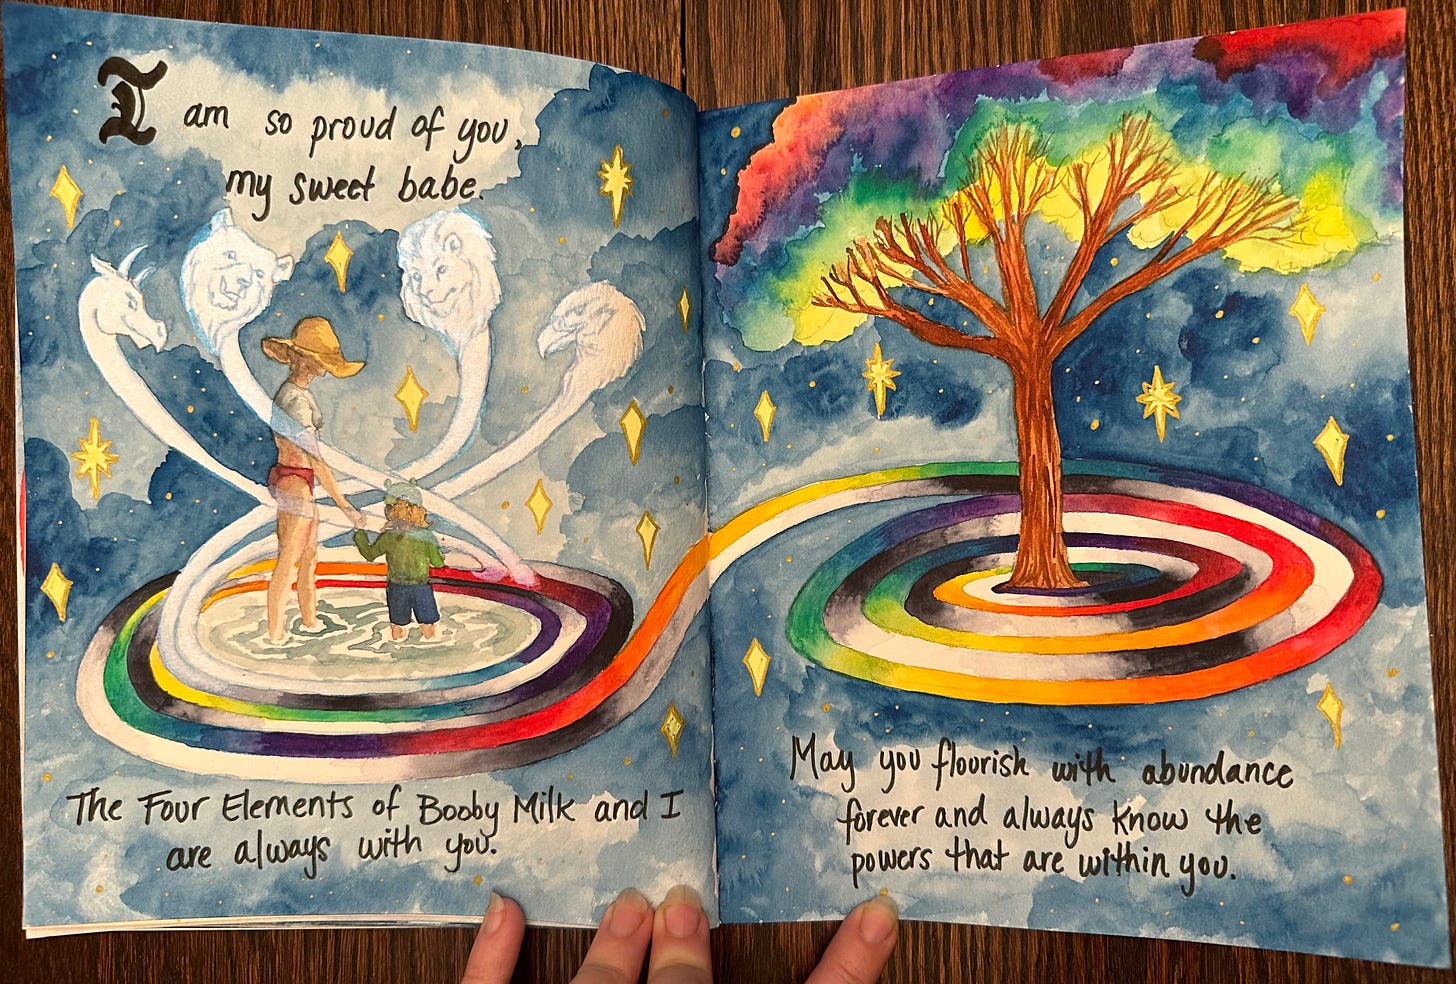 I am so proud of you,
my sweet babe.
The Four Elements of Booby Milk and I
are always with you.
May you flourish with abundance
forever and always know the
powers that are within you.